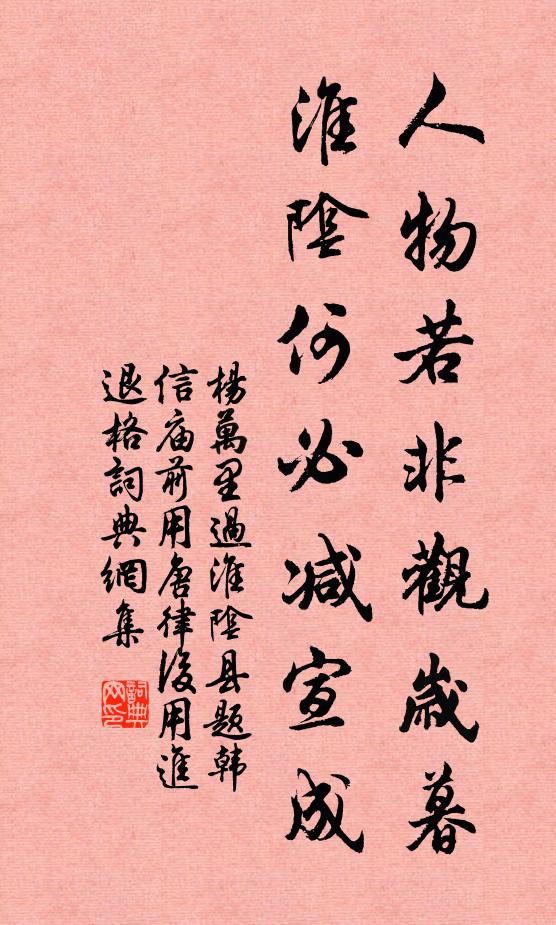 人物若非觀歲暮
淮陰何必減宣成
楊萬里過淮陰县题韩
信庙前用唐律後用進
退格詞典網集
詞典网印